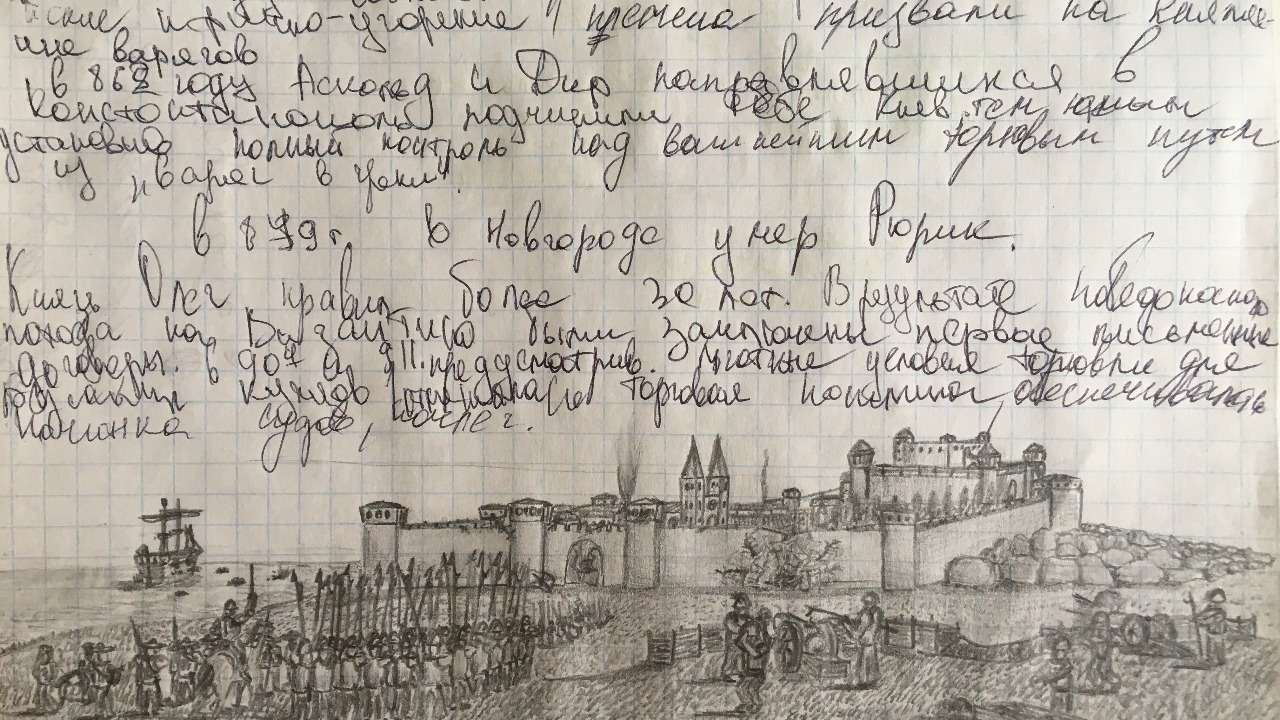 племена призвали на княже-
ние варягов
в 862 году Аскольд и Дир направлявшихся в
Константинополь подчинили себе Киев тем самым
установив полный контроль над важнейшим торговым путем
из "варяг в греки".
в 879 г. в Новгороде умер Рюрик.
Князь Олег правил более 30 лет. В результате победоносного
похода на Византию были заключены первые письменные
договоры. в 907 и 911. предусматрив. льготные условия торговли для
купцов торговая обеспечивалась
починка судов, ночлег.